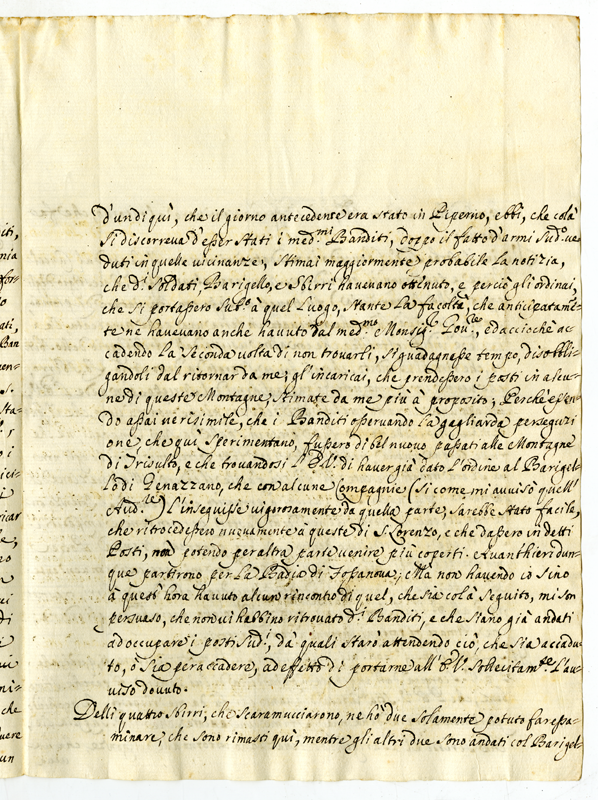 d'un di quì, che il giorno antecedente era stato in Piperno, ebbi, che colà
si discorreva d'esser stati i med.mi Banditi, doppo il fatto d'armi sud.o ve
duti in quelle vicinanze, stimai maggiormente probabile la notizia,
che d.i soldati, Barigello, e sbirri havevano ottenuto, e perciò gli ordinai,
che si portassero sub.o à quel luogo, stante la facoltà, che anticipatam.te
te ne havevano anche havuto dal med.mo Monsig.r Gov.re, ed accioche ac
cadendo la seconda volta di non trovarli, si guadagnasse tempo, disobbli-
gandoli dal ritornar da me; gl'incaricai, che prendessero i posti in alcu-
ne di queste Montagne, stimate da me più à proposito; Perche essen-
do assai verisimile, che i Banditi osservando la gagliarda persecuzi
one, che qui sperimentano, fussero di bel nuovo passati alle Montagne
di Trisulto, e che trovandosi l' di haver già dato l'ordine al Barigel-
lo di Genazzano, che con alcune Compagnie (si come mi avvisò quell'
Aud.re) l'inseguisse vigorosamente da quella parte, sarebbe stato facile,
che ritrocedessero nuovamente à queste di S. Lorenzo, e che dassero in detti
Posti, non potendo per altra parte venire più coperti. Avanthieri dun-
que partirono per la Badia di Fossanova; Mà non havendo io sino
à quest'hora havuto alcun rincontro di quel, che sia colà seguito, mi son
persuaso, che non vi habbino ritrovato d.i Banditi, e che siano già andati
ad occupare i posti sud.i, da quali starò attendendo ciò, che sia accadu-
to, ò sia per accadere, ad effetto di portarne all' sollecitam.te l'av-
viso dovuto.
Delli quattro sbirri, che scaramucciarono, ne hò due solamente potuto far esa-
minare, che sono rimasti quì, mentre gli altri due sono andati col Barigel-